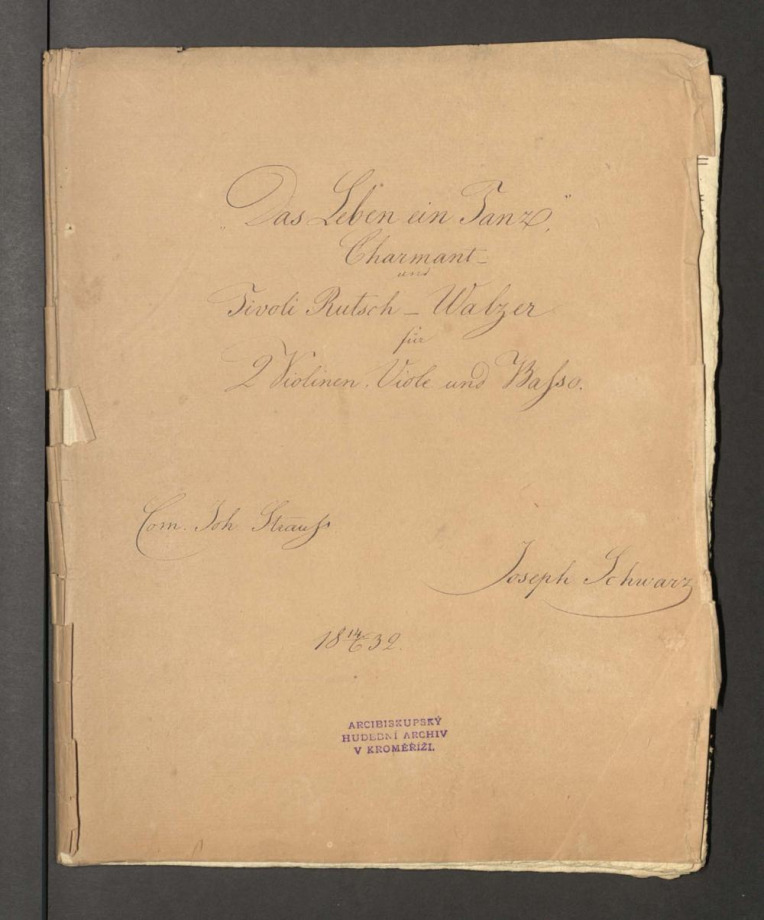 „Das Leben ein Tanz,"
Charmant-
und
Tivoli Rutsch - Walzer
für
2 Violinen, Viole und Baſso.
Com. Joh Strauſs
Joseph Schwarz
18 14/6 32.
ARCIBISKUPSKÝ
HUDEBNÍ ARCHIV
V KROMĚŘÍŽI.